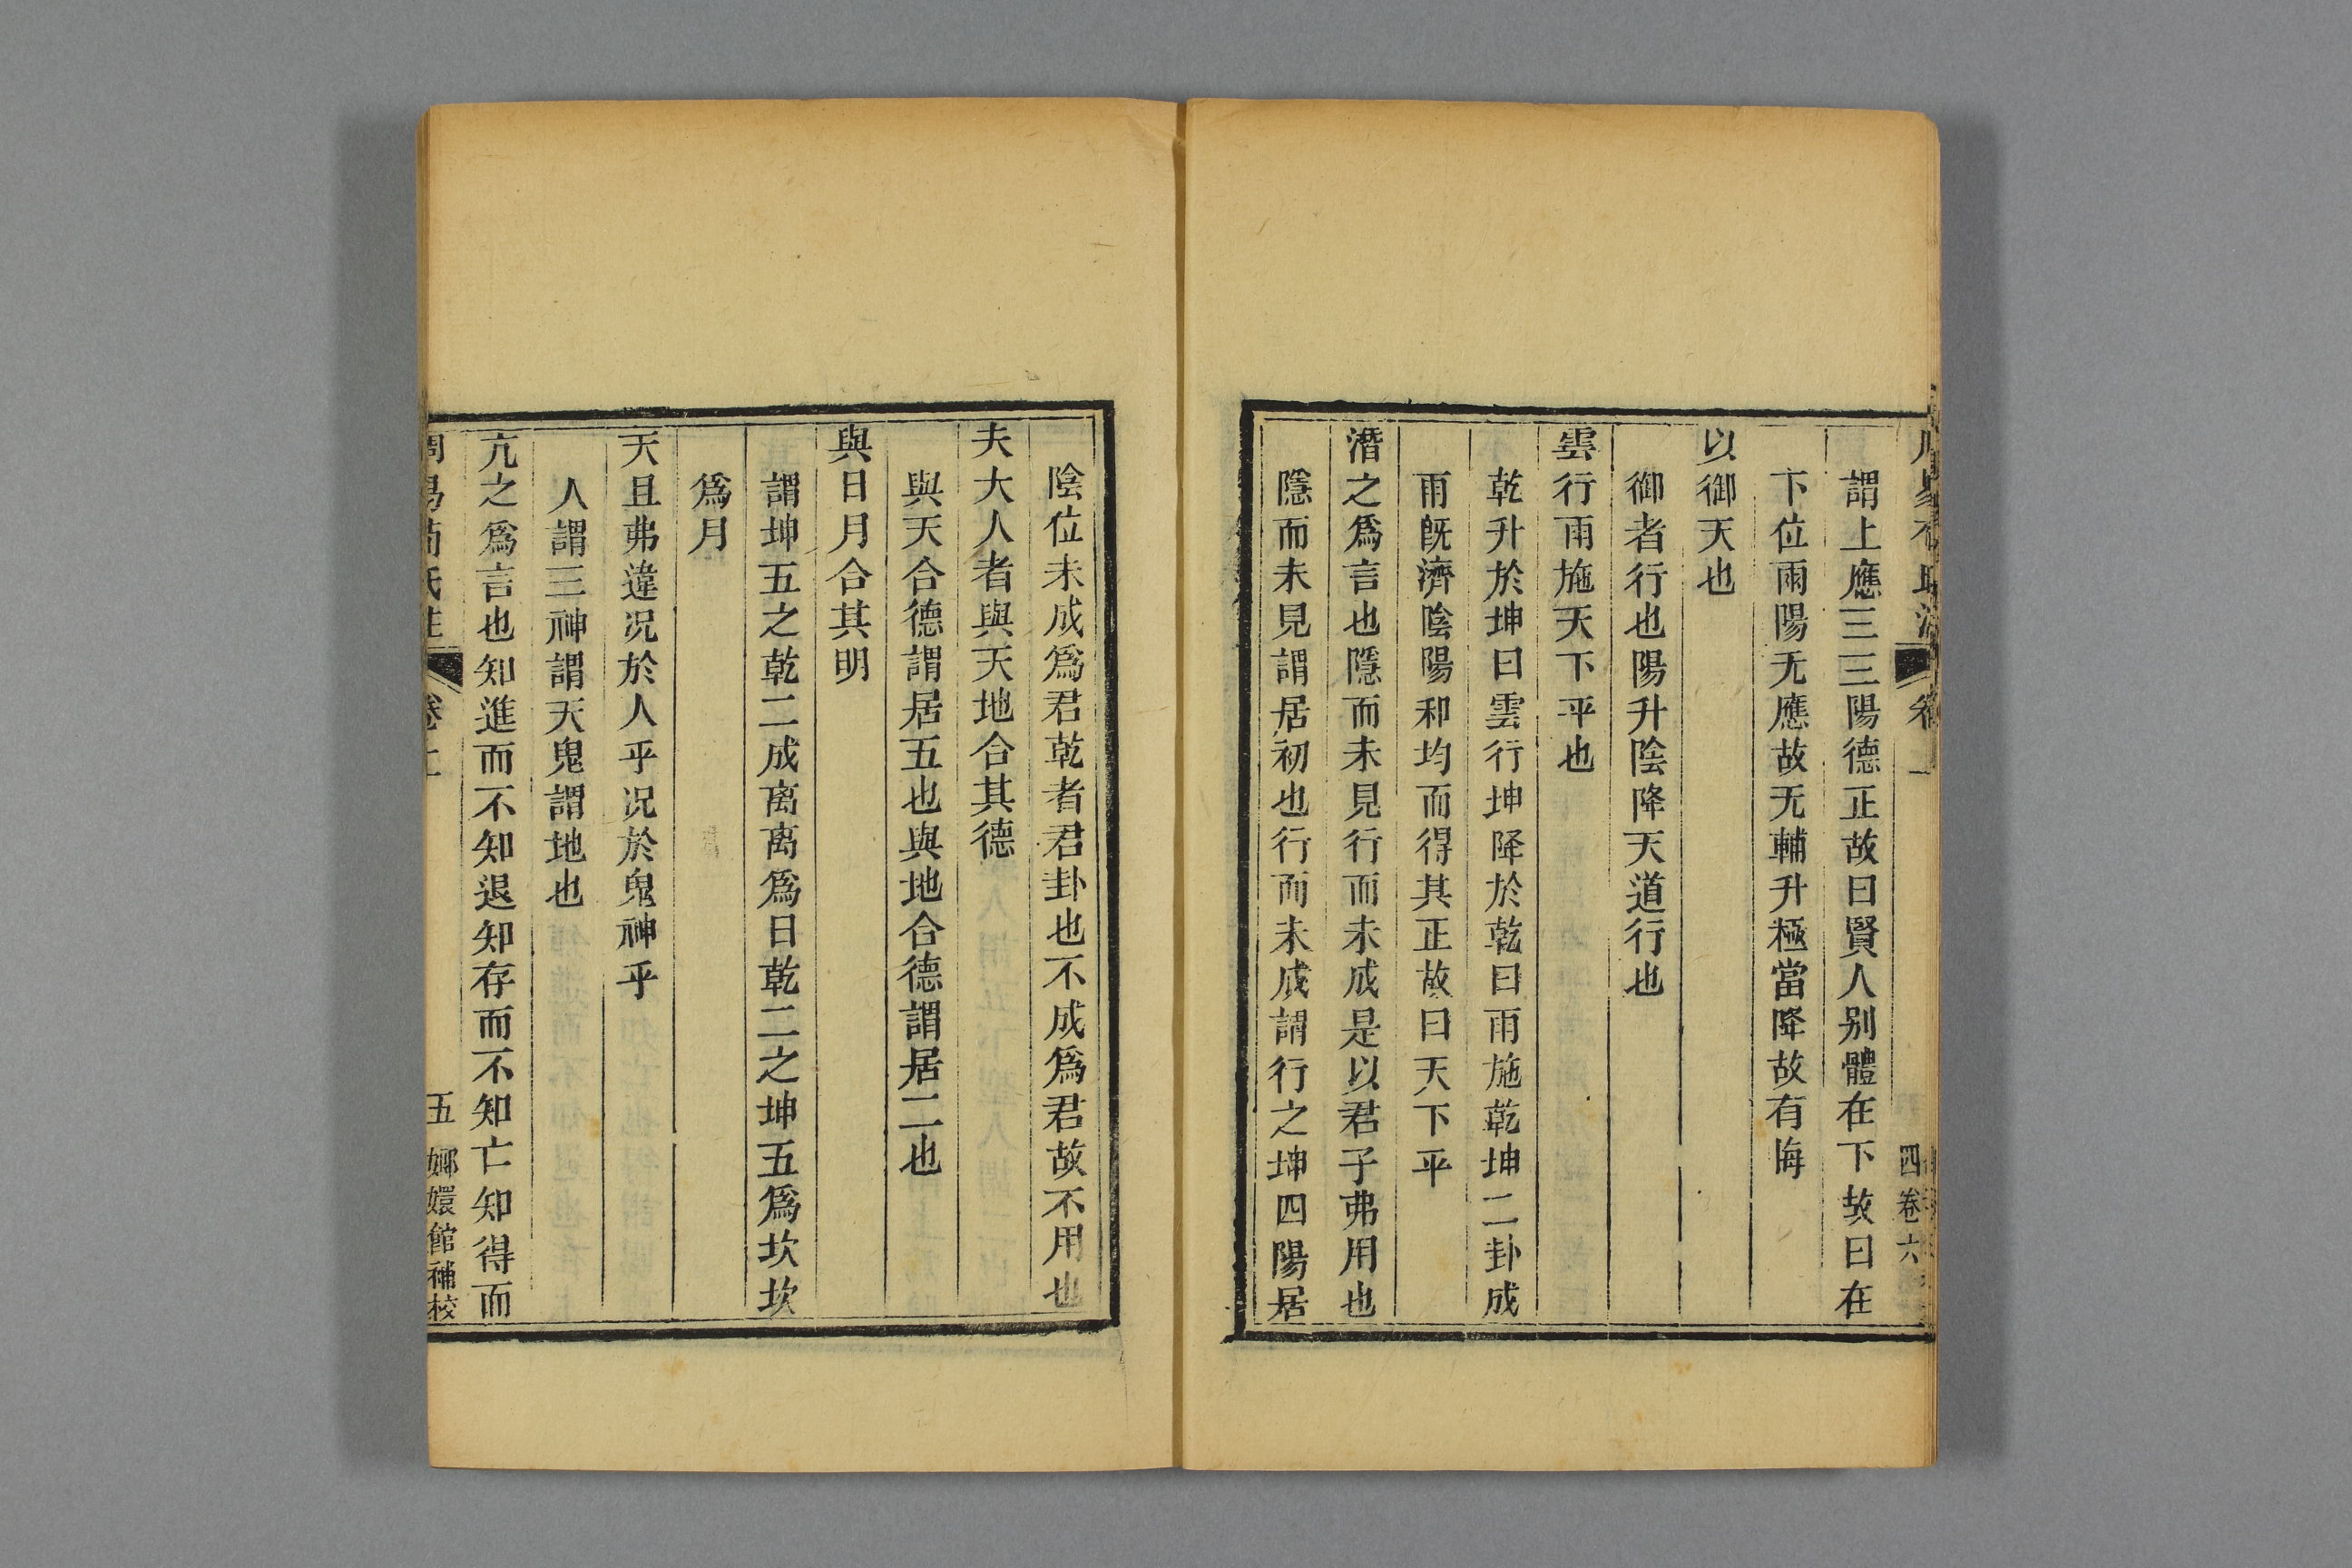 謂上應三三陽德正故曰賢人别體在下故曰在
下位雨陽无應故无輔升極當降故有悔
以御天也
御者行也陽升陰降天道行也
雲行雨施天下平也
乾升於坤曰雲行坤降於乾曰雨施乾坤二卦成
雨旣濟陰陽和均而得其正故曰天下平
潛之爲言也隱而未見行而未成是以君子弗用也
隱而未見謂居初也行而未成謂行之坤四陽居
四 卷六
陰位未成爲君乾者君卦也不成爲君故不用也
夫大人者與天地合其德
與天合德謂居五也與地合德謂居二也
與日月合其明
謂坤五之乾二成离离爲日乾二之坤五爲坎坎
爲月
天且弗違况於人乎况於鬼神乎
人謂三神謂天鬼謂地也
亢之爲言也知進而不知退知存而不知亡知得而
周易荀氏注 卷上 五 嫏嬛館補校